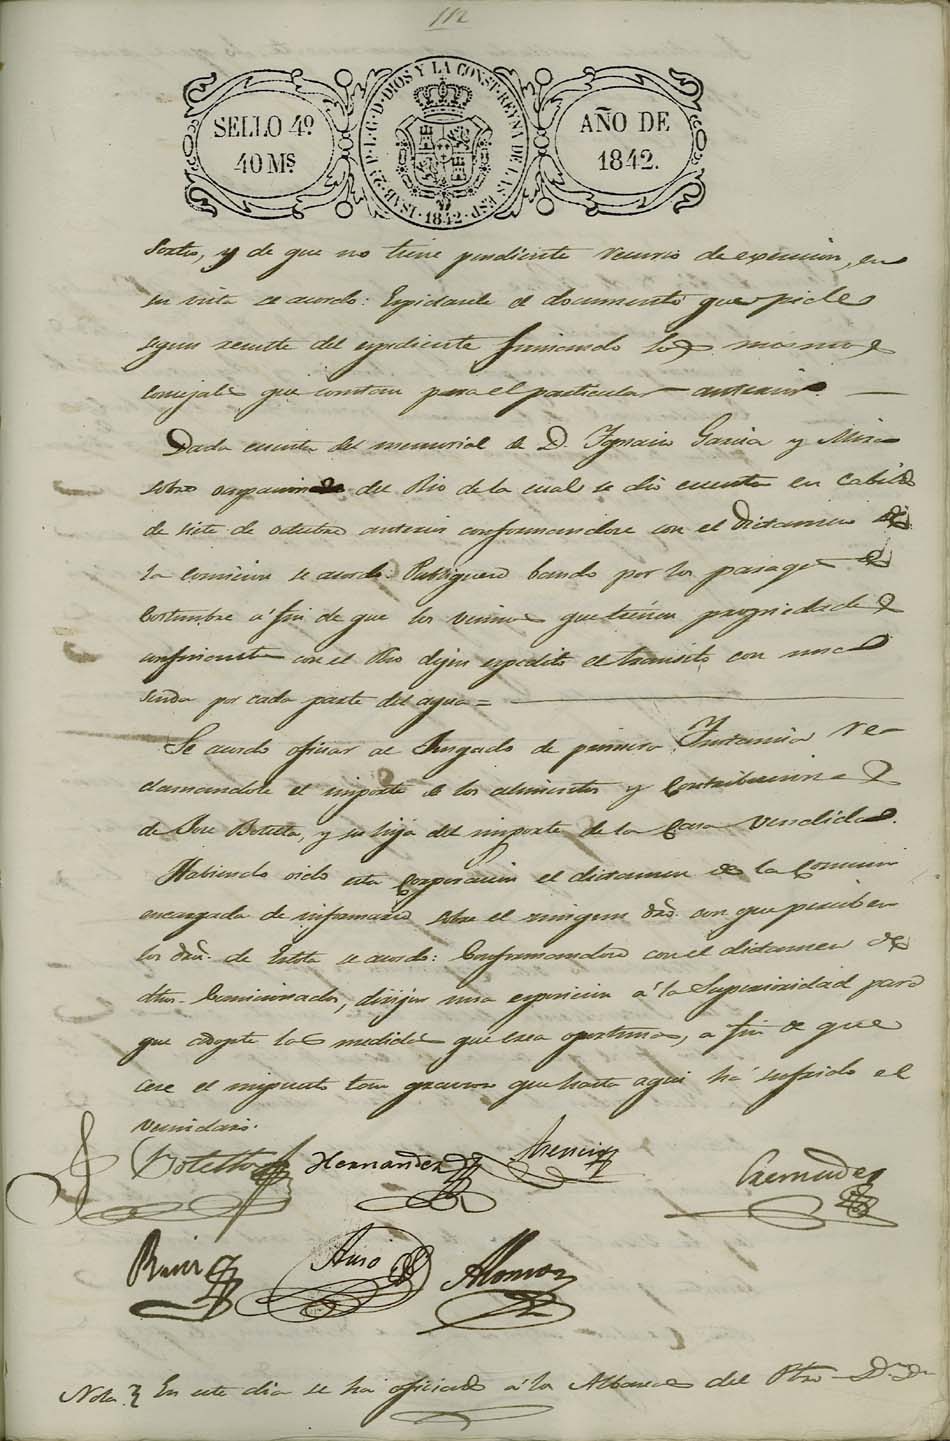 112
SELLO 4º
40 Ms.
ISAB. 2ª P. L. G. D. DIOS Y LA CONST. REYNA DE LAS ESP.
1842
AÑO DE
1842.
Sorteo, y de que no tiene pendiente recurso de exencion, en
su vista se acordo: Espidasele el documento que pide
segun resulte del espediente firmando los mismos
Concejales que constan para el particular anterior.
Dada cuenta del memorial de D. Ignacio Garcia y Mira
sobre del Rio de la cual se dio cuenta en Cabildo
de siete de octubre anterior conformandose con el dictamen de
la Comision se acordo: Publiquese bando por los parages de
Costumbre á fin de que los vecinos que tienen propiedades
confinantes con el Rio dejen espedito el transito con una
senda por cada parte del agua =
Se acordo oficiar al Juzgado de primera Instancia re-
clamandole el importe de los alimentos y Contribuciones
de José Botella, y su hija del importe de la Casa vendida.
Habiendo oido esta Corporacion el dictamen de la Comision
encargada de informar sobre el con que perciben
los de se acordo: Conformandose con el dictamen de
dhos. Comisionados, dirijir una esposicion á la Superioridad para
que adopte las medidas que crea oportunas, a fin de que
cese el impuesto tan gravoso que hasta aqui há sufrido el
vecindario.
Botella Hernandez Asencio
Ruiz Alonso
Nota En este dia se ha oficiado á los Albaceas del Pbro. Dn.